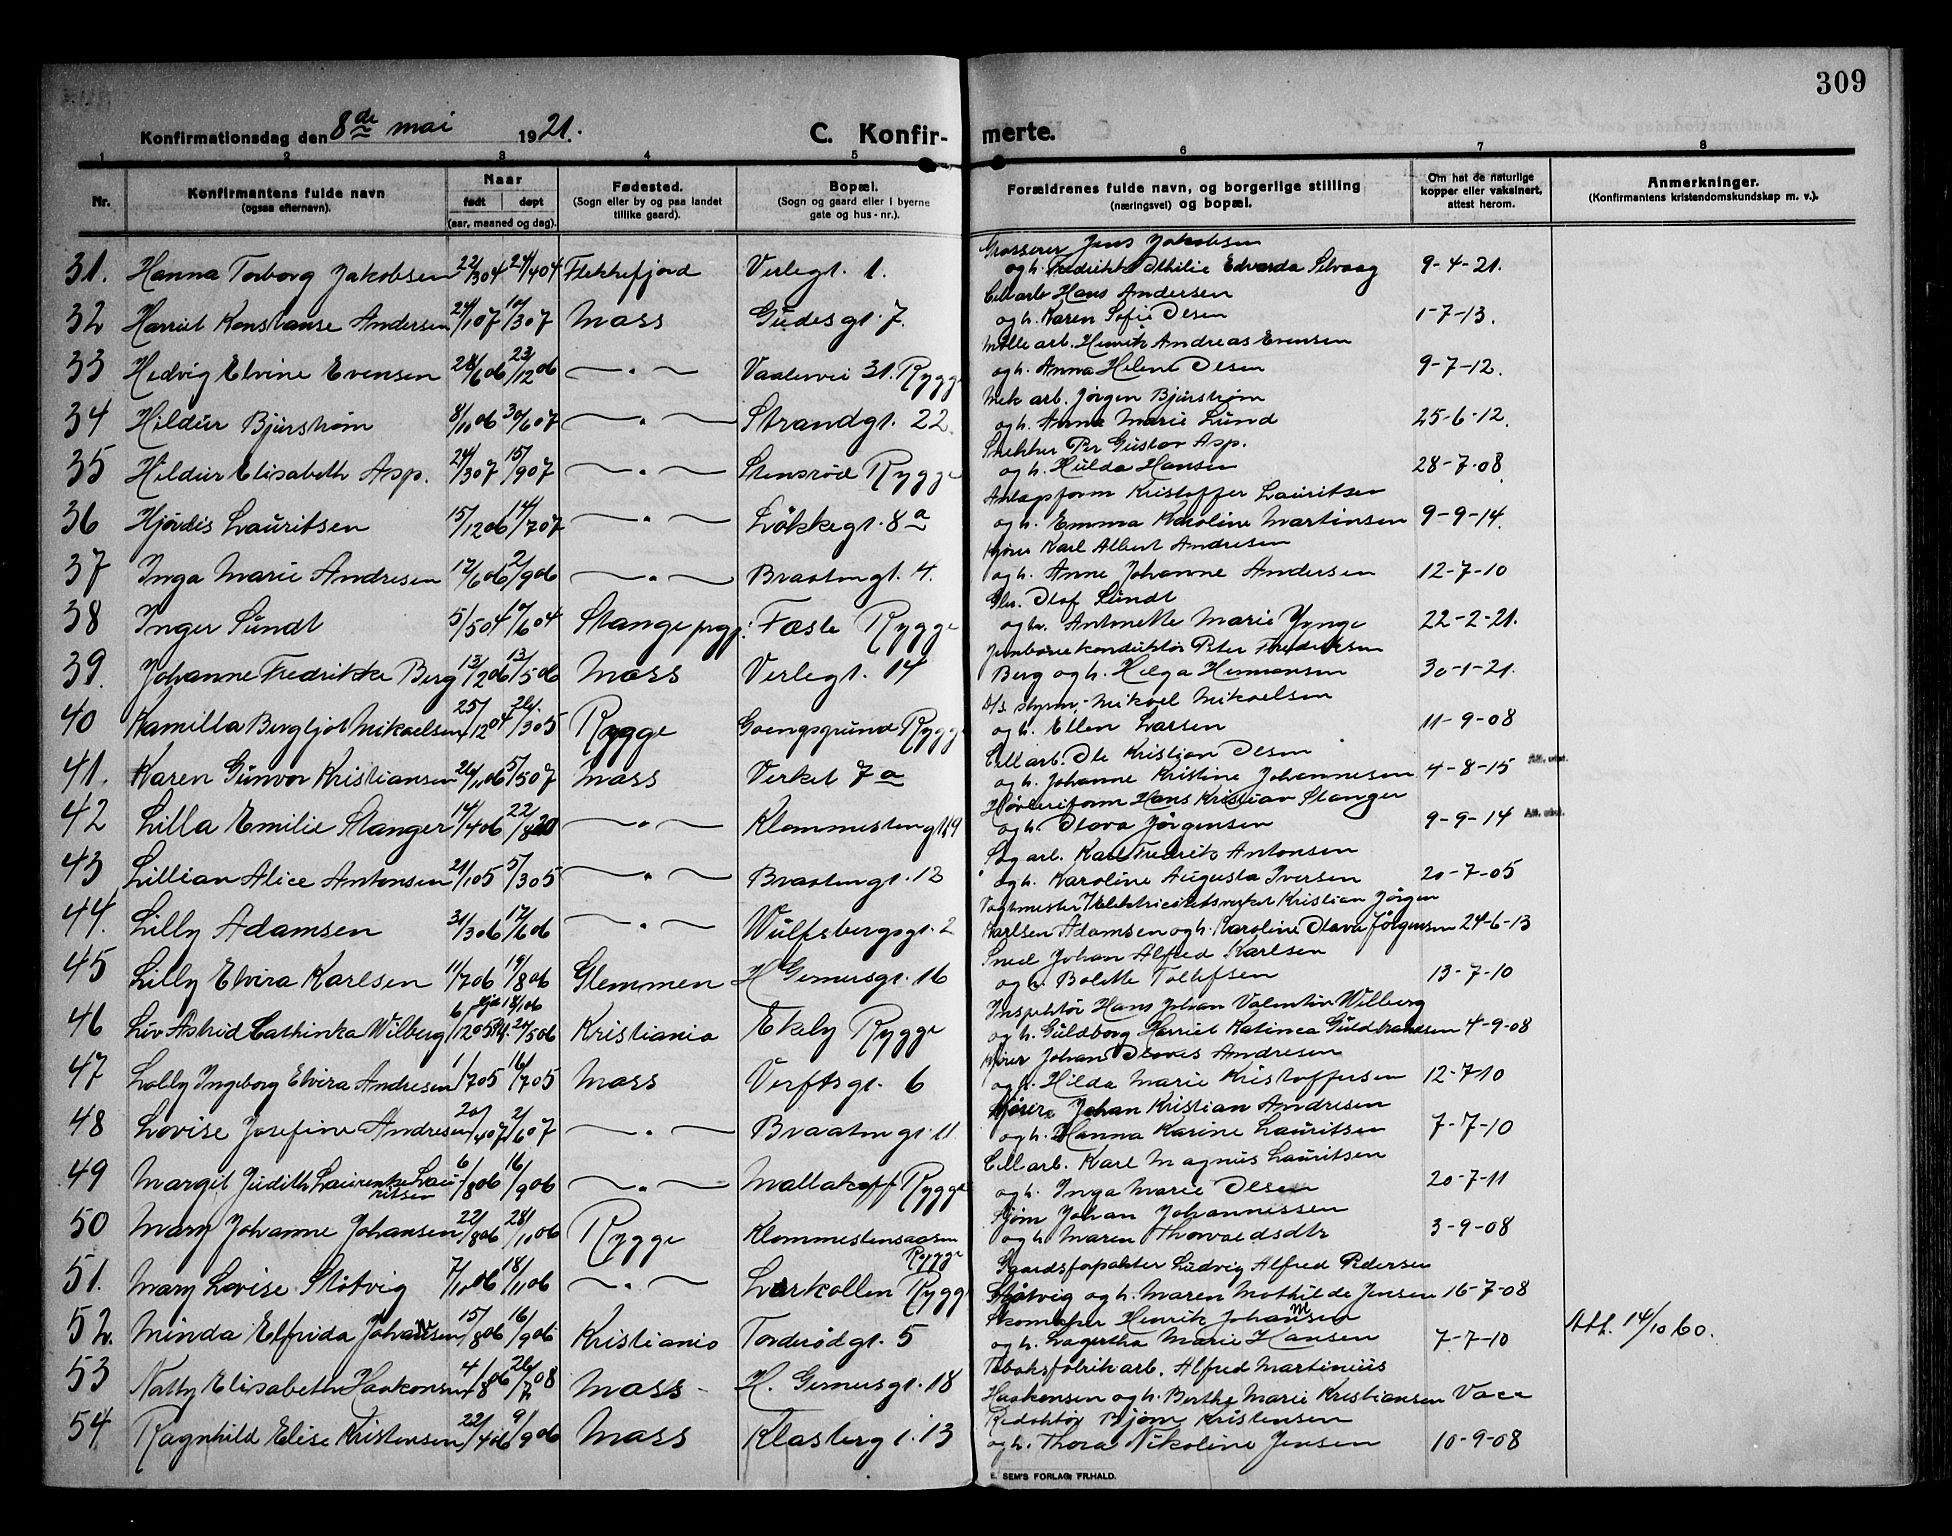 309
Konfirmationsdag den 8de mai 1921. C. Konfirmerte.
1 2 3 4 5 6 7 8
Nr. Konfirmantens fulde navn (ogsaa efternavn). Naar født døpt (aar, maaned og dag). Fødested. (Sogn eller by og paa landet tillike gaard). Bopæl. (Sogn og gaard eller i byerne gate og hus-nr.). Forældrenes fulde navn, og borgerlige stilling (næringsvei) og bopæl. Om hat de naturlige kopper eller vaksinert, attest herom. Anmerkninger. (Konfirmantens kristendomskundskap m. v.).
Grosserer Jens Jakobsen
31. Hanna Torborg Jakobsen 22/3 04 24/4 04 Flekkefjord Verlegt. 1. og h. Fredrikke Othilie Edvarda Selvaag 9-4-21.
Cell arb Hans Andersen
32 Harriet Konstanse Andersen 24/10 7 10/3 07 Moss Gudesgt. 7. og h. Karen Sofie Olsen 1-7-13.
Mølle arb. Henrik Andreas Evensen
33 Hedvig Elvine Evensen 28/6 06 23/12 06 — " — Vaalervei 31. Rygge og h. Anna Helene Olsen 9-7-12.
Mek arb. Jørgen Bjurstrøm
34 Hildur Bjurstrøm 8/10 06 30/6 07 — " — Strandgt. 22 og h. Anna Marie Lund 25-6-12.
Snekker Per Gustav Asp.
35 Hildur Elisabeth Asp. 24/3 07 15/9 07 — " — Stensrød Rygge og h. Hulda Hansen 28-7-08.
Anlægsform Kristoffer Lauritsen
36 Hjørdis Lauritsen 15/12 06 14/7 07 — " — Løkkegt. 8a og h. Emma Karoline Martinsen 9-9-14.
Kjører Karl Albert Andresen
37 Inga Marie Andresen 17/6 06 2/9 06 — " — Braatengt. 4. og h. Anne Johanne Andersen 12-7-10
Olof Sundt
38 Inger Sundt 5/5 04 17/6 04 Stange prgj. Fæste Rygge og h. Antonette Marie Yynge 22-2-21.
Jernbanekonduktør Peter Fredriksen
39. Johanne Fredrikke Berg 13/2 06 13/5 06 Moss Verlegt. 14 Berg og h. Helga Hermansen 30-1-21.
D/S styrm. Mikael Mikaelsen
40 Kamilla Bergljot Mikaelsen 25/12 04 26/3 05 Rygge Goengsgrund Rygge og h. Ellen Larsen 11-9-08
Cell arb. Ole Kristian Olsen
41. Karen Gunvor Kristiansen 26/1 06 5/5 07 Moss Verket 7a og h. Johanne Kristine Johannesen 4-8-15 Att. utst.
Høvleriform Hans Kristian Stanger
42 Lilla Emilie Stanger 14/4 06 22/8 20 — " — Klommestengt. 19 og h. Olava Jørgensen 9-9-14 Att. utst.
Sag arb. Karl Fredrik Antonsen
43 Lillian Alice Antonsen 21/1 05 5/3 05 — " — Braatengt. 12 og h. Karoline Augusta Iversen 20-7-05
Vagtmester v/ Elektricitetsverket Kristian Jørgen
44. Lilly Adamsen 31/3 06 17/6 06 — " — Wulfsbergsgt. 2 Karlsen Adamsen og h. Karoline Olava Jørgensen 24-6-13
Sned Johan Alfred Karlsen
45 Lilly Elvira Karlsen 11/7 06 19/8 06 Glemmen H Gernersgt. 16 og h. Bolette Tollefsen 13-7-10
Inspektør Hans Johan Valentin Wilberg
46 Liv Astrid Cathinka Wilberg 6/12 05 27/5 06 Kristiania Ekely Rygge og h. Guldborg Harriet Katinca Guldbrandsen 4-9-08
Kjører Johan Olaves Andresen
47 Lolly Ingeborg Elvira Andresen 1/7 05 16/7 05 Moss Verftsgt. 6 og h. Hilda Marie Kristoffersen 12-7-10
Kjører Johan Kristian Andresen
48 Lovise Josefine Andresen 20/4 07 2/6 07 — " — Braatengt. 11. og h. Hanna Karine Lauritsen 7-7-10
Cell arb. Karl Magnus Lauritsen
49 Margit Judith Laurenke Lauritsen 6/8 06 16/9 06 — " — Mallakoff Rygge og h. Inga Marie Olsen 20-7-11
Sjøm Johan Johannissen
50 Mary Johanne Johansen 22/8 06 28/10 06 Rygge Klommestensaasen Rygge og h Maren Thorvaldsdtr 3-9-08
Gaardsforpakter Ludvig Alfred Pedersen
51. Mary Lovise Støtvig 7/10 06 18/11 06 — " — Larkollen Rygge Støtvig og h. Maren Mathilde Jensen 16-7-08
Skomaker Henrik Johansen
52. Minda Elfrida Johansen 15/8 06 16/9 06 Kristiania Torderødgt. 5 og h. Lagertha Marie Hansen 7-7-10 Att. 14/10 60.
Tobaksfabrikarb. Alfred Martinius
53 Natty Elisabeth Haakonsen 4/8 06 26/7 08 Moss H. Gernersgt. 18 Haakonsen og h. Berthe Marie Kristiansen Vacc
Redaktør Bjørne Kristensen
54 Ragnhild Elise Kristensen 22/4 06 9/9 06 Moss Klasberg i. 13 og h. Thora Nikoline Jensen 10-9-08
E. SEM'S FORLAG, FR.HALD.